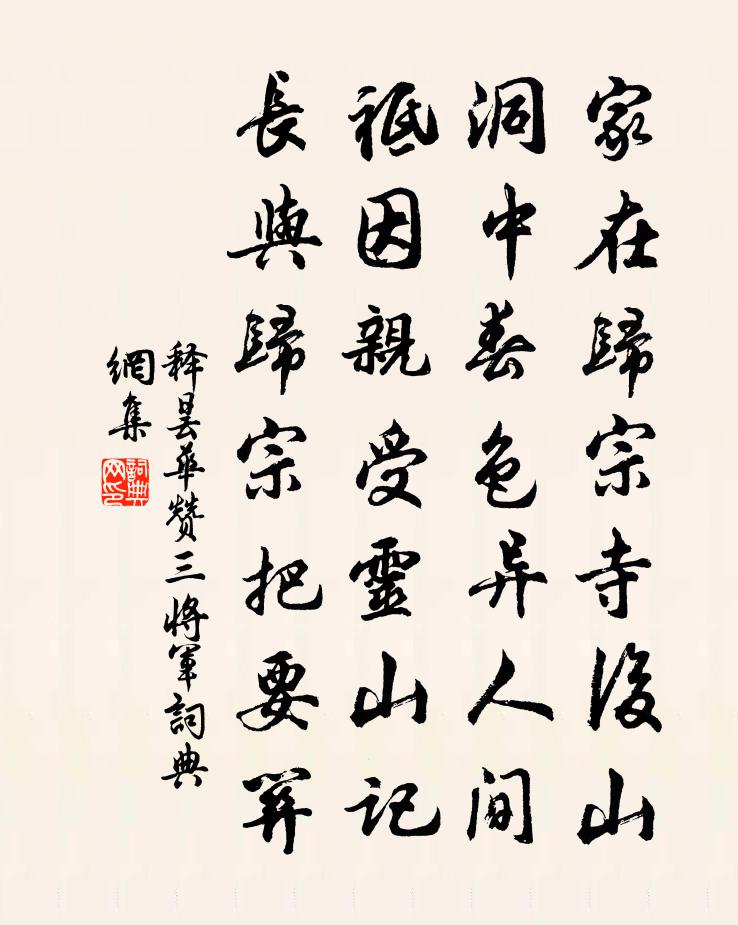 家在歸宗寺後山
洞中春色异人間
祗因親受靈山記
長與歸宗把要關
释曇華赞三將軍詞典
網集
詞典网印